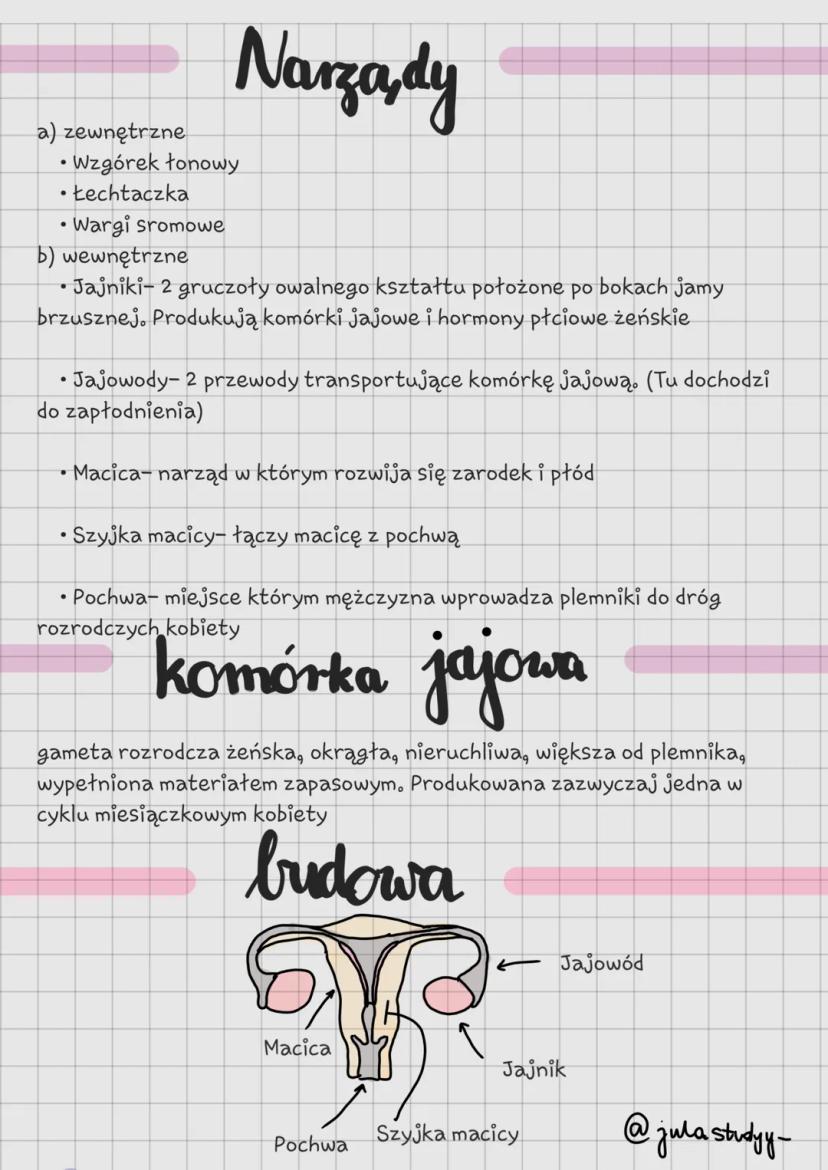 Narządy
a) zewnętrzne
• Wzgórek łonowy
• Łechtaczka
• Wargi sromowe
b) wewnętrzne
• Jajniki– 2 gruczoły owalnego kształtu położone po bokach jamy
brzusznej. Produkują komórki jajowe i hormony płciowe żeńskie
• Jajowody– 2 przewody transportujące komórkę jajową. (Tu dochodzi
do zapłodnienia)
• Macica– narząd w którym rozwija się zarodek i płód
• Szyjka macicy– łączy macicę z pochwą
• Pochwa– miejsce którym mężczyzna wprowadza plemniki do dróg
rozrodczych kobiety
komórka jajowa
gameta rozrodcza żeńska, okrągła, nieruchliwa, większa od plemnika,
wypełniona materiałem zapasowym. Produkowana zazwyczaj jedna w
cyklu miesiączkowym kobiety
budowa
Jajowód
Macica
Jajnik
Pochwa
Szyjka macicy
@julastudyy_